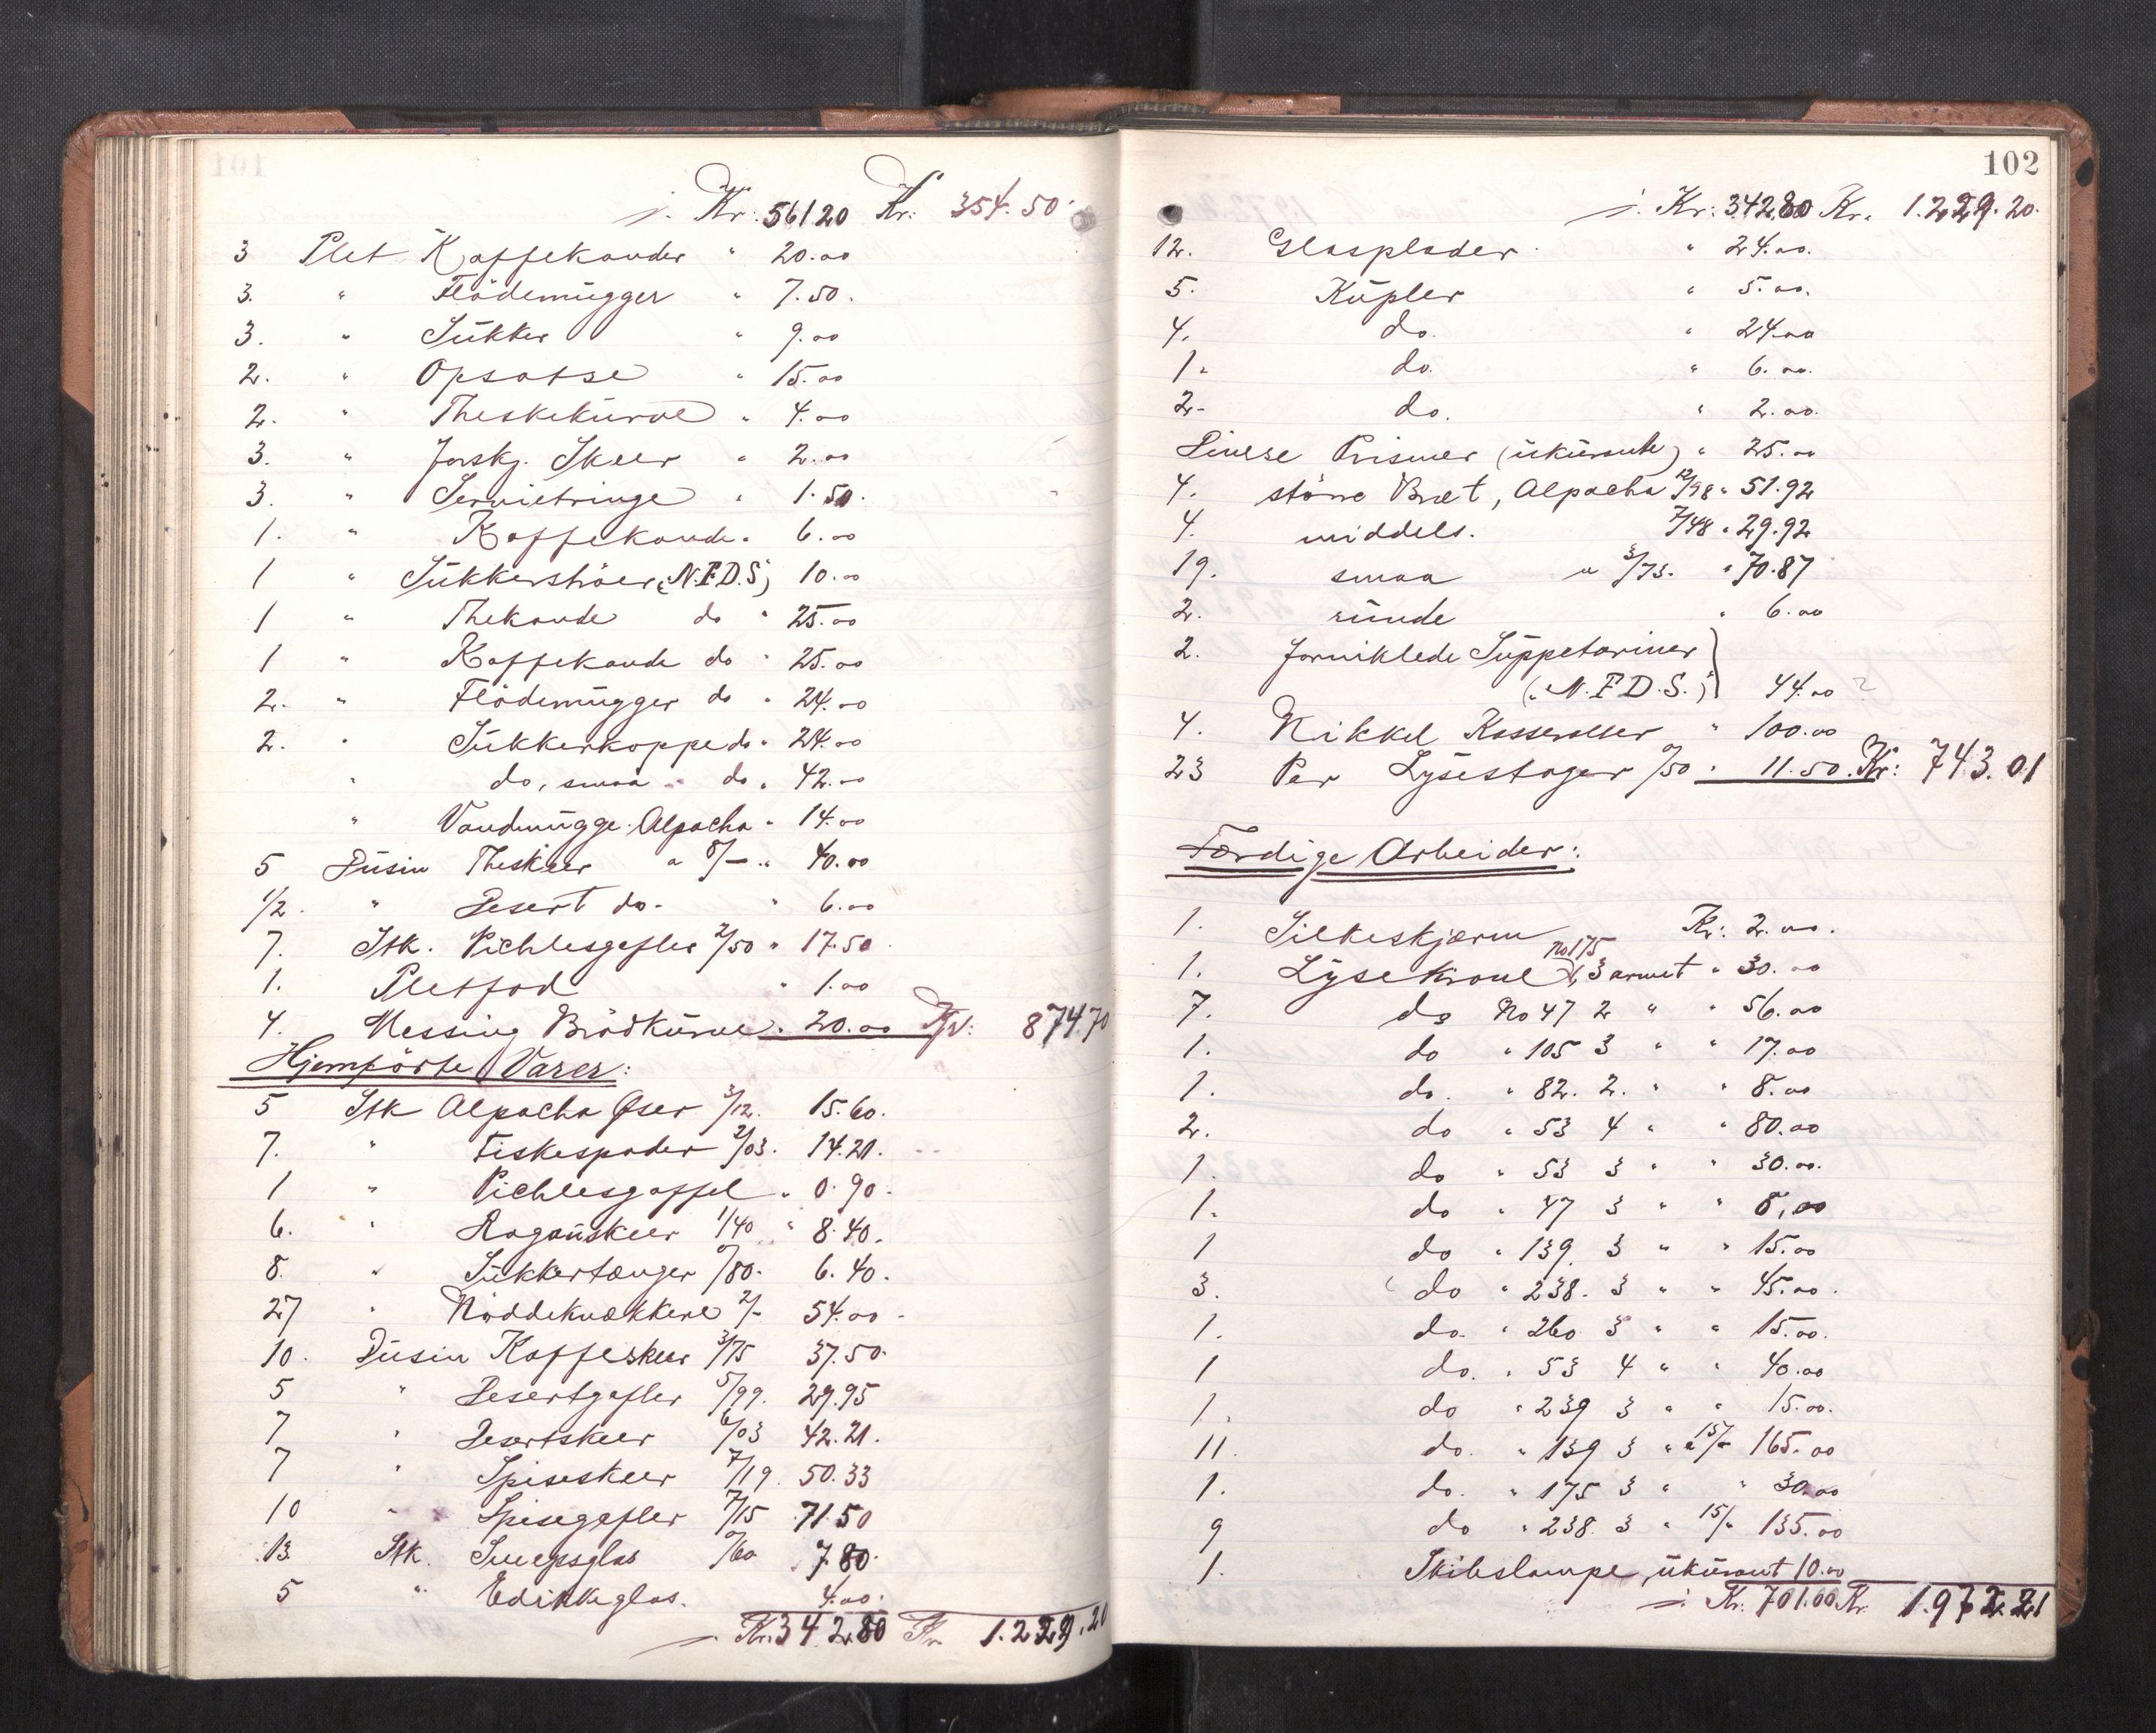 101
Kr: 561 20 Kr: 354.50
3 Plet Kaffekander " 20.00
3. " Flödemügger " 7.50.
3. " Sükker " 9.00
2. " Opsatse " 15.00
2. " Theskekürve " 4.00
3. " Forskj. Skeer " 2.00
3. " Servietringe " 1.50.
1. " Kaffekande " 6.00
1 " Sükkerströer (N.F.D.S) 10.00
1 " Thekande do " 25.00
1 " Kaffekande do " 25.00
2. " Flödemügger do " 24.00
2. " Sükkerkoppe do " 24.00
" do, smaa " do " 42.00
" Vandmügge Alpacha " 14.00
5 Düsin Theskeer a 8/- " 40.00
1/2. " Desert do. " 6.00
7. Stk. Pichlesgafler 2/50 " 17.50
1. Pletfad " 1.00
4. Messing Brödkürve " 20.00 Kr: 874.70
Hjemförte Varer:
5 Stk Alpacha Öser 3/12. 15.60.
7. " Fiskespader 2/03. 14.21.
1 " Pichlesgaffel " 0.90.
6. " Ragoüskeer 1/40 " 8.40.
8. " Sükkertænger 0/80. 6.40.
27 " Nöddeknækkere 2/- 54.00
10. Düsin Kaffeskeer 3/75 37.50.
5 " Desertgafler 5/99. 29.95
7 " Desertskeer 6/03 42.21.
7 " Spiseskeer 7/19. 50.33
10 " Spisegafler 7/15 71.50
13. Stk. Snepsglas 0/60 7.80.
5 " Edikkeglas. 4.00.
Kr. 342.80 Kr 1.229.20
102
Kr: 342.80 Kr. 1.229.20.
12. Glasplader " 24.00.
5. Küpler " 5.00.
4. do. " 24.00
1. do. " 6.00.
2. do. " 2.00.
Diverse Prismer (ükürante) " 25.00
4. större Bræt, Alpacha 12/98 " 51.92
4. middels. 7/48 " 29.92
19. smaa a 3/73. " 70.87
2. ründe " 6.00
2. Forniklede Süppetariner
(N.F.D.S.) 44.00 ?
4. Nikkel Kasseroller " 100.00
23 Par Lysestager 0/50 " 11.50. Kr: 743.01
Færdige Arbeider:
1. Silkeskjærm Kr: 2.00.
1. Lysekrone No 175 3 armet " 30.00
7. do No 47 2 " " 56.00
1. do " 105 3 " " 17.00
1. do. " 82. 2. " " 8.00
2. do " 53 4 " " 80.00
1. do " 53 3 " " 30.00.
1. do " 47 3 " " 8.00
1 do " 139. 3 " " 15.00
3. do " 238. 3 " " 45.00.
1. do. " 260 3 " " 15.00.
1 do. " 53 4 " " 40.00
1. do " 239 3 " " 15.00.
11. do. " 139 3 " a 15/- 165.00
1. do. " 175 3 " " 30.00
9 do " 238. 3 " 15/- 135.00
1. Skibslampe, ükürant 10.00
Kr. 701.00 Kr. 1.972.21